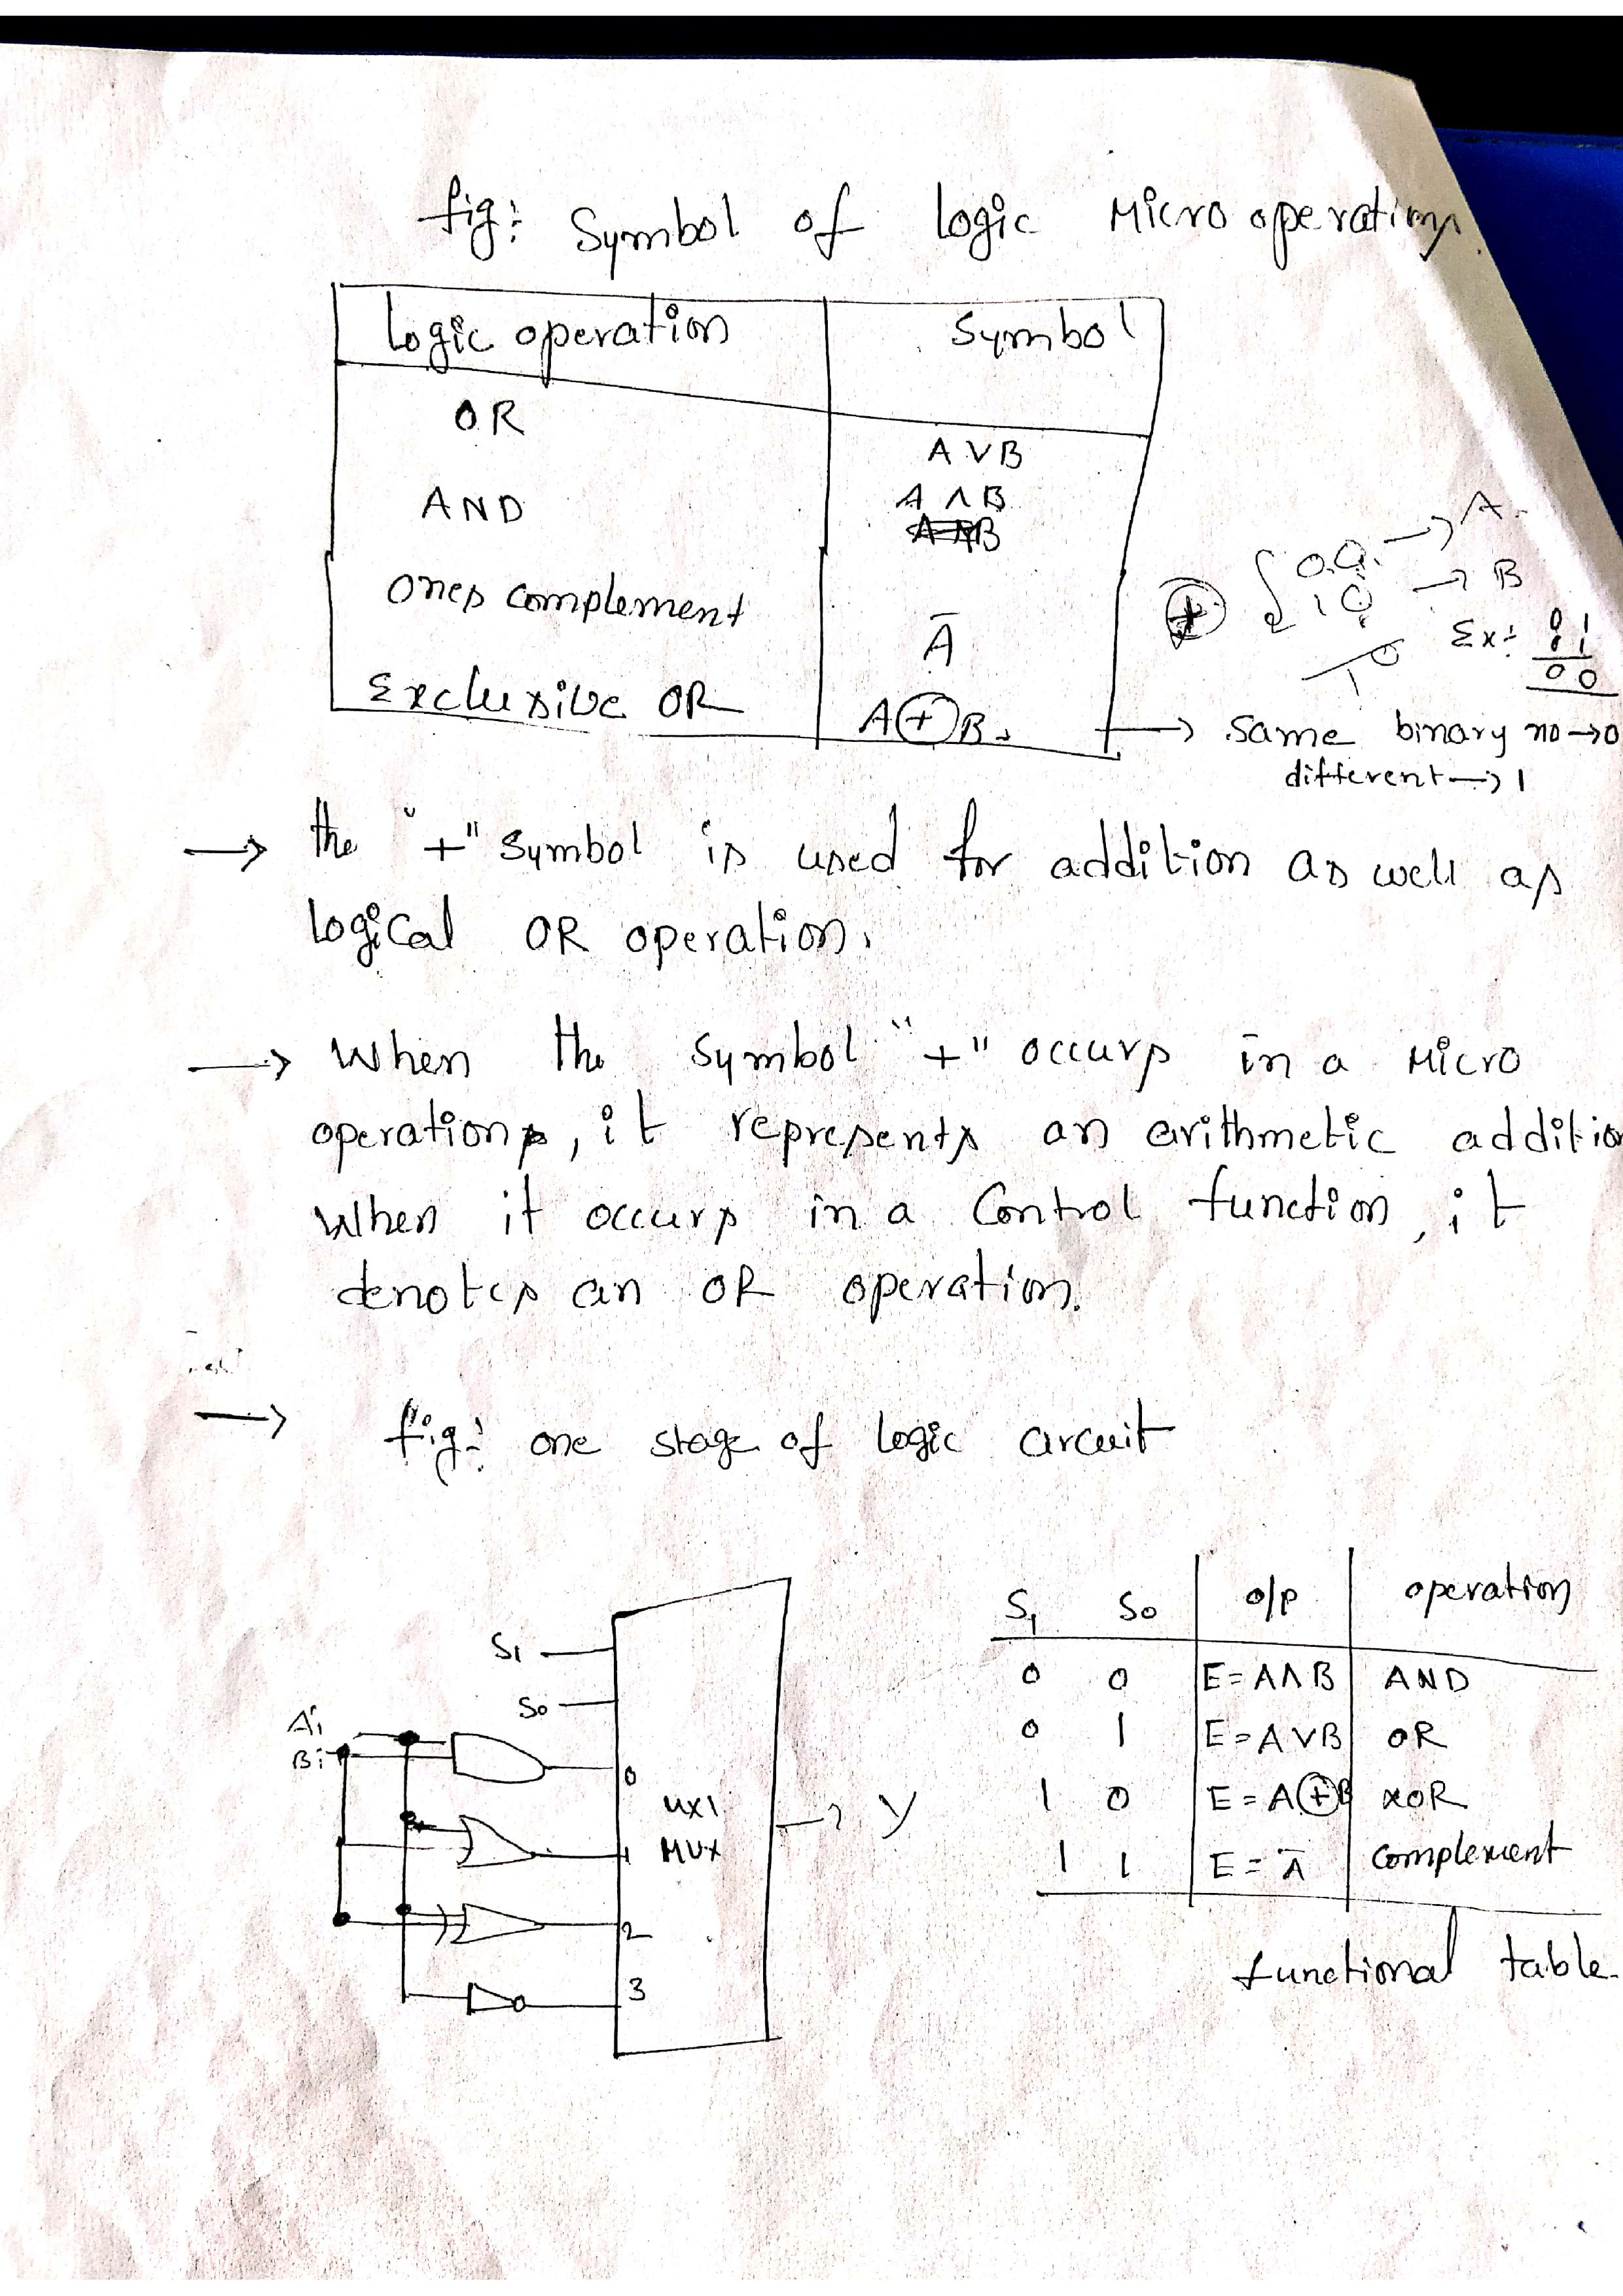 fig: Symbol of logic Micro operations
logic operation Symbol
OR A ∨ B
AND A ∧ B
Ones complement Ā
Exclusive OR A ⊕ B.
⊕ 0 0 → A.
1 0 → B
1 0
Ex: 0 1
0 1
0 0
→ same binary no → 0
different → 1
→ the "+" symbol is used for addition as well as
logical OR operation.
→ When the symbol "+" occurs in a Micro
operation, it represents an arithmetic additio
When it occurs in a Control function, it
denotes an OR operation.
→ fig: one stage of logic circuit
S1
S0
Ai
Bi
0
4x1
1 MUX
→ Y
2
3
S1 S0 o/p operation
0 0 E = A ∧ B AND
0 1 E = A ∨ B OR
1 0 E = A ⊕ B XOR
1 1 E = Ā Complement
functional table.